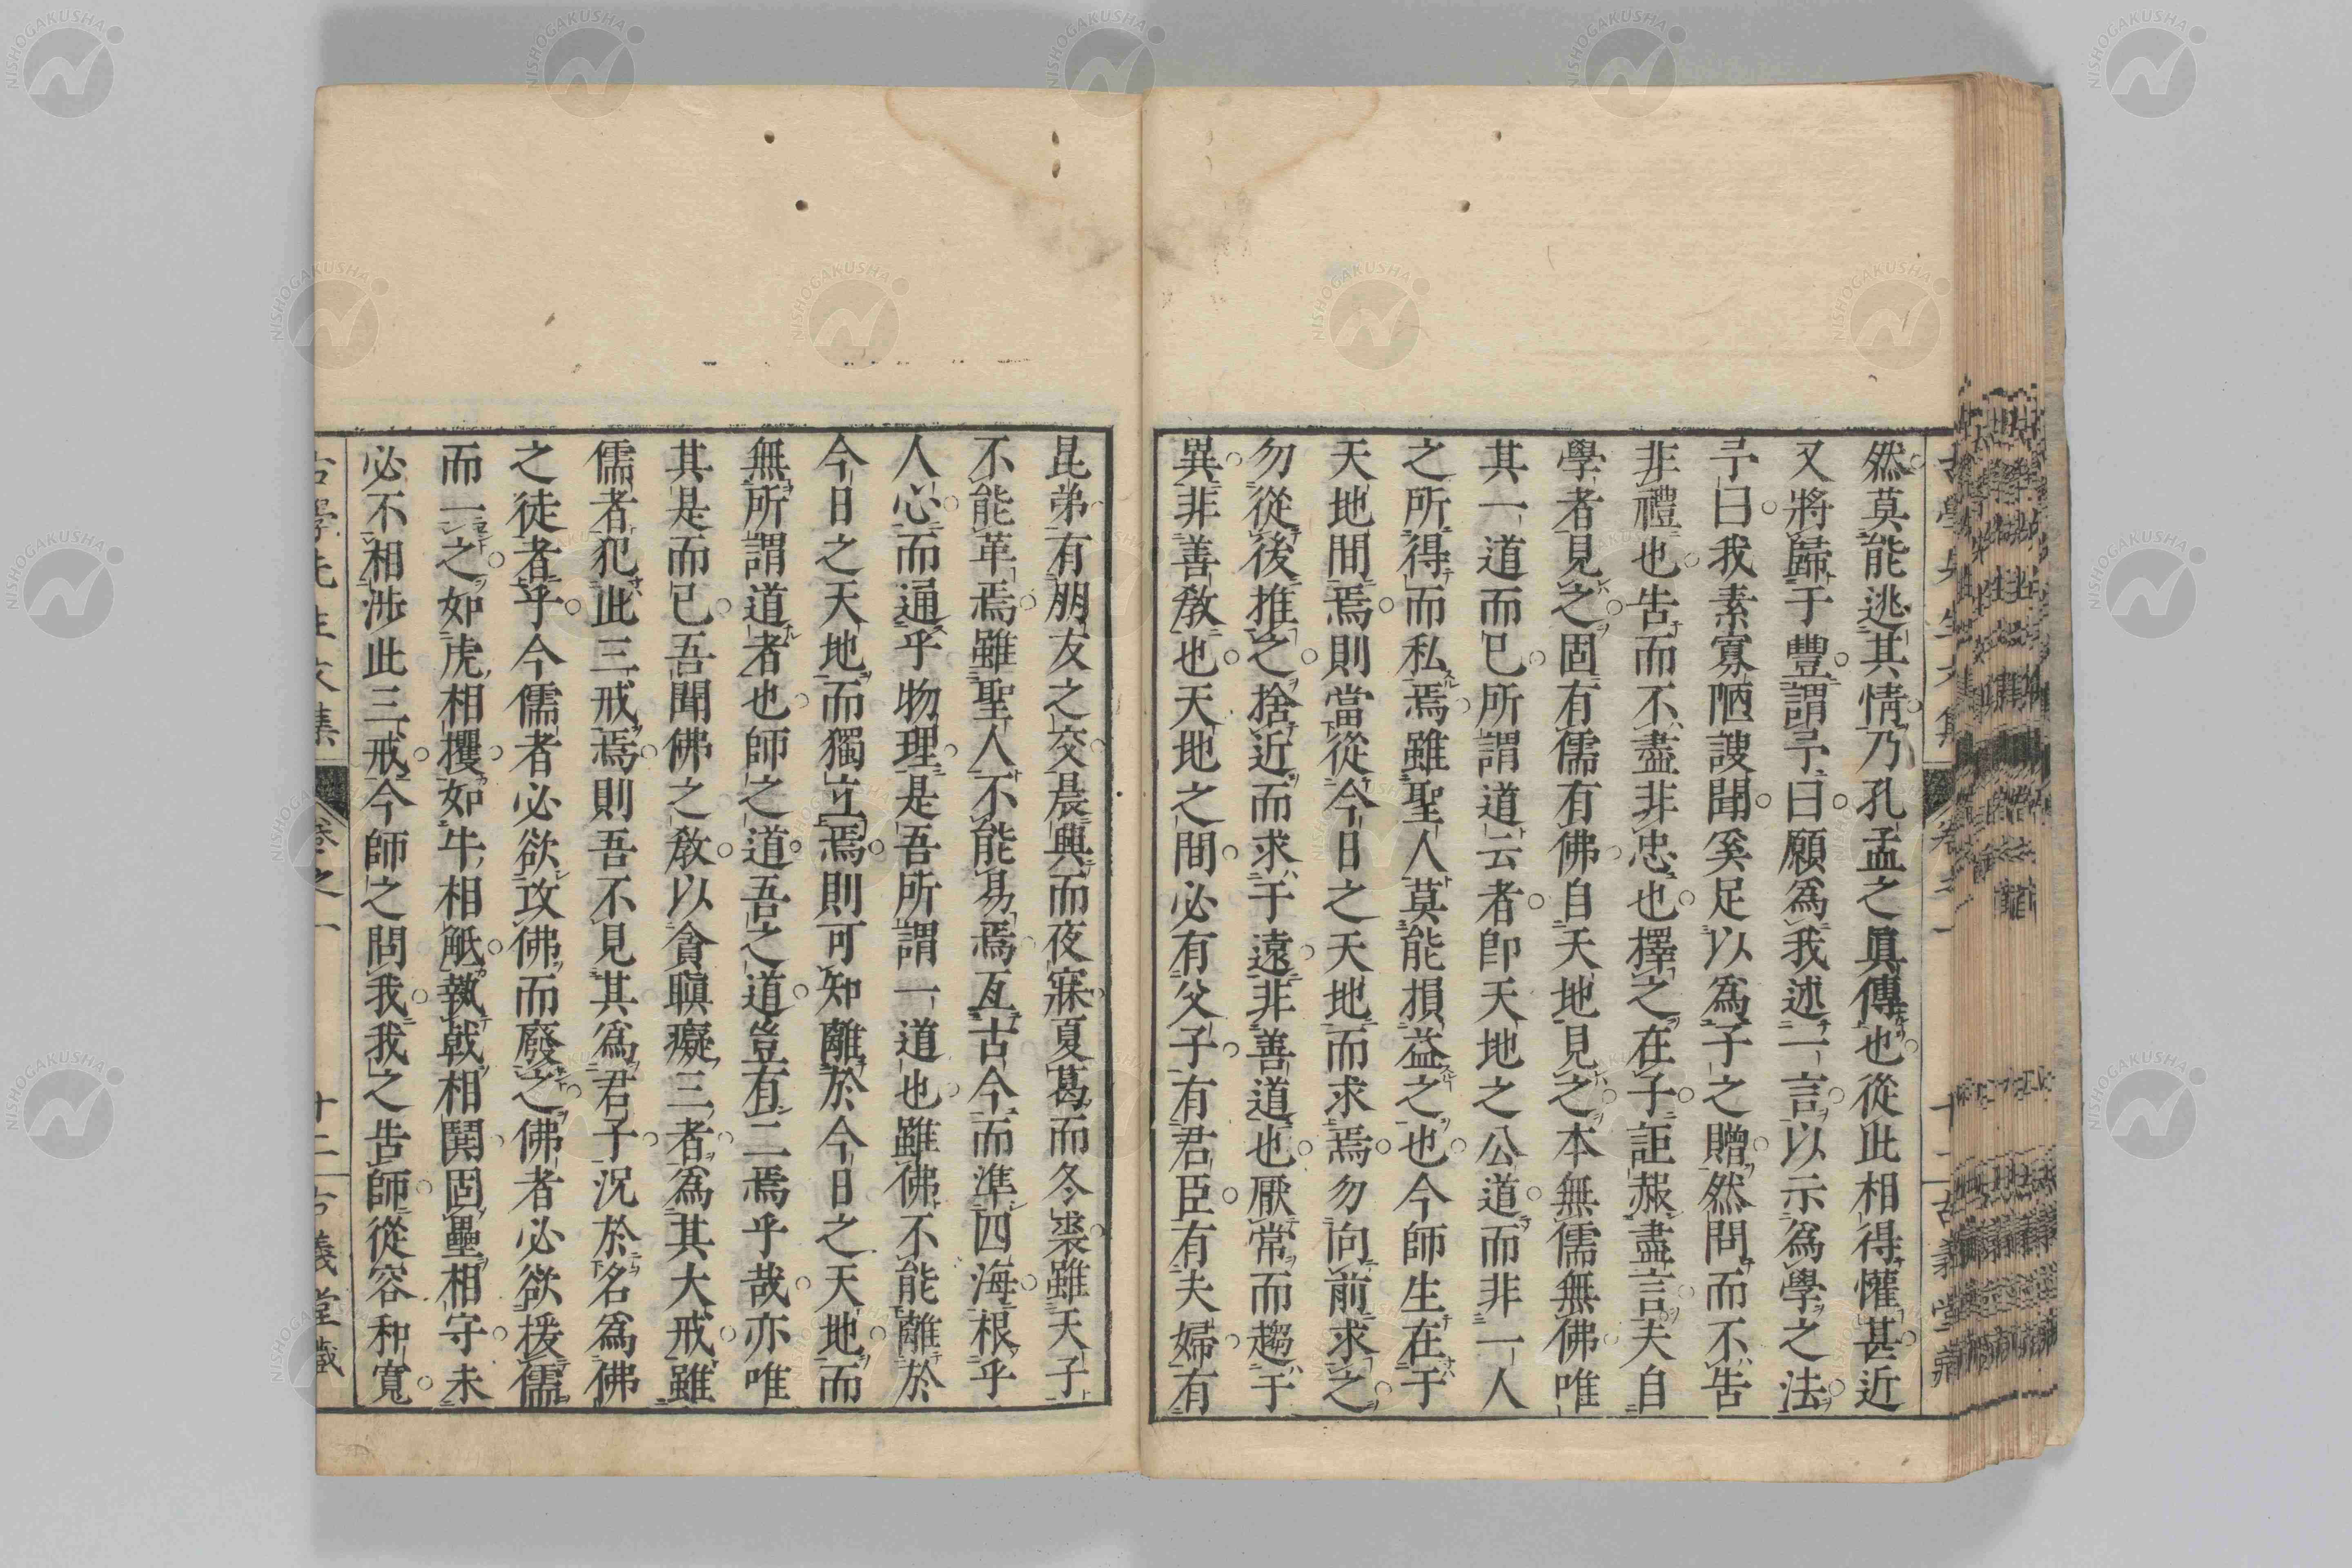 然莫能逃其情乃孔孟之眞傳也從此相得懽甚近
又將歸于豐謂予曰願爲我述一言以示爲學之法
予曰我素寡陋謏聞奚足以爲子之贈然問而不告
非禮也告而不盡非忠也擇之在子詎赧盡言夫自
學者見之固有儒有佛自天地見之本無儒無佛唯
其一道而已所謂道云者卽天地之公道而非一人
之所得而私焉雖聖人莫能損益之也今師生在于
天地間焉則當從今日之天地而求焉勿向前求之
勿從後推之捨近而求于遠非善道也厭常而趨于
異非善敎也天地之間必有父子有君臣有夫婦有
昆弟有朋友之交晨興而夜寐夏葛而冬裘雖天子
不能革焉雖聖人不能易焉亙古今而準四海根乎
人心而通乎物理是吾所謂一道也雖佛不能離於
今日之天地而獨立焉則可知離於今日之天地而
無所謂道者也師之道吾之道豈有二焉乎哉亦唯
其是而已吾聞佛之敎以貪瞋癡三者爲其大戒雖
儒者犯此三戒焉則吾不見其爲君子況於名爲佛
之徒者乎今儒者必欲攻佛而廢之佛者必欲援儒
而一之如虎相攫如牛相觝執戟相鬨固壘相守未
必不相渉此三戒今師之問我我之告師從容和寛
古學先生文集 卷之一 十二 古義堂藏
NISHOGAKUSHA